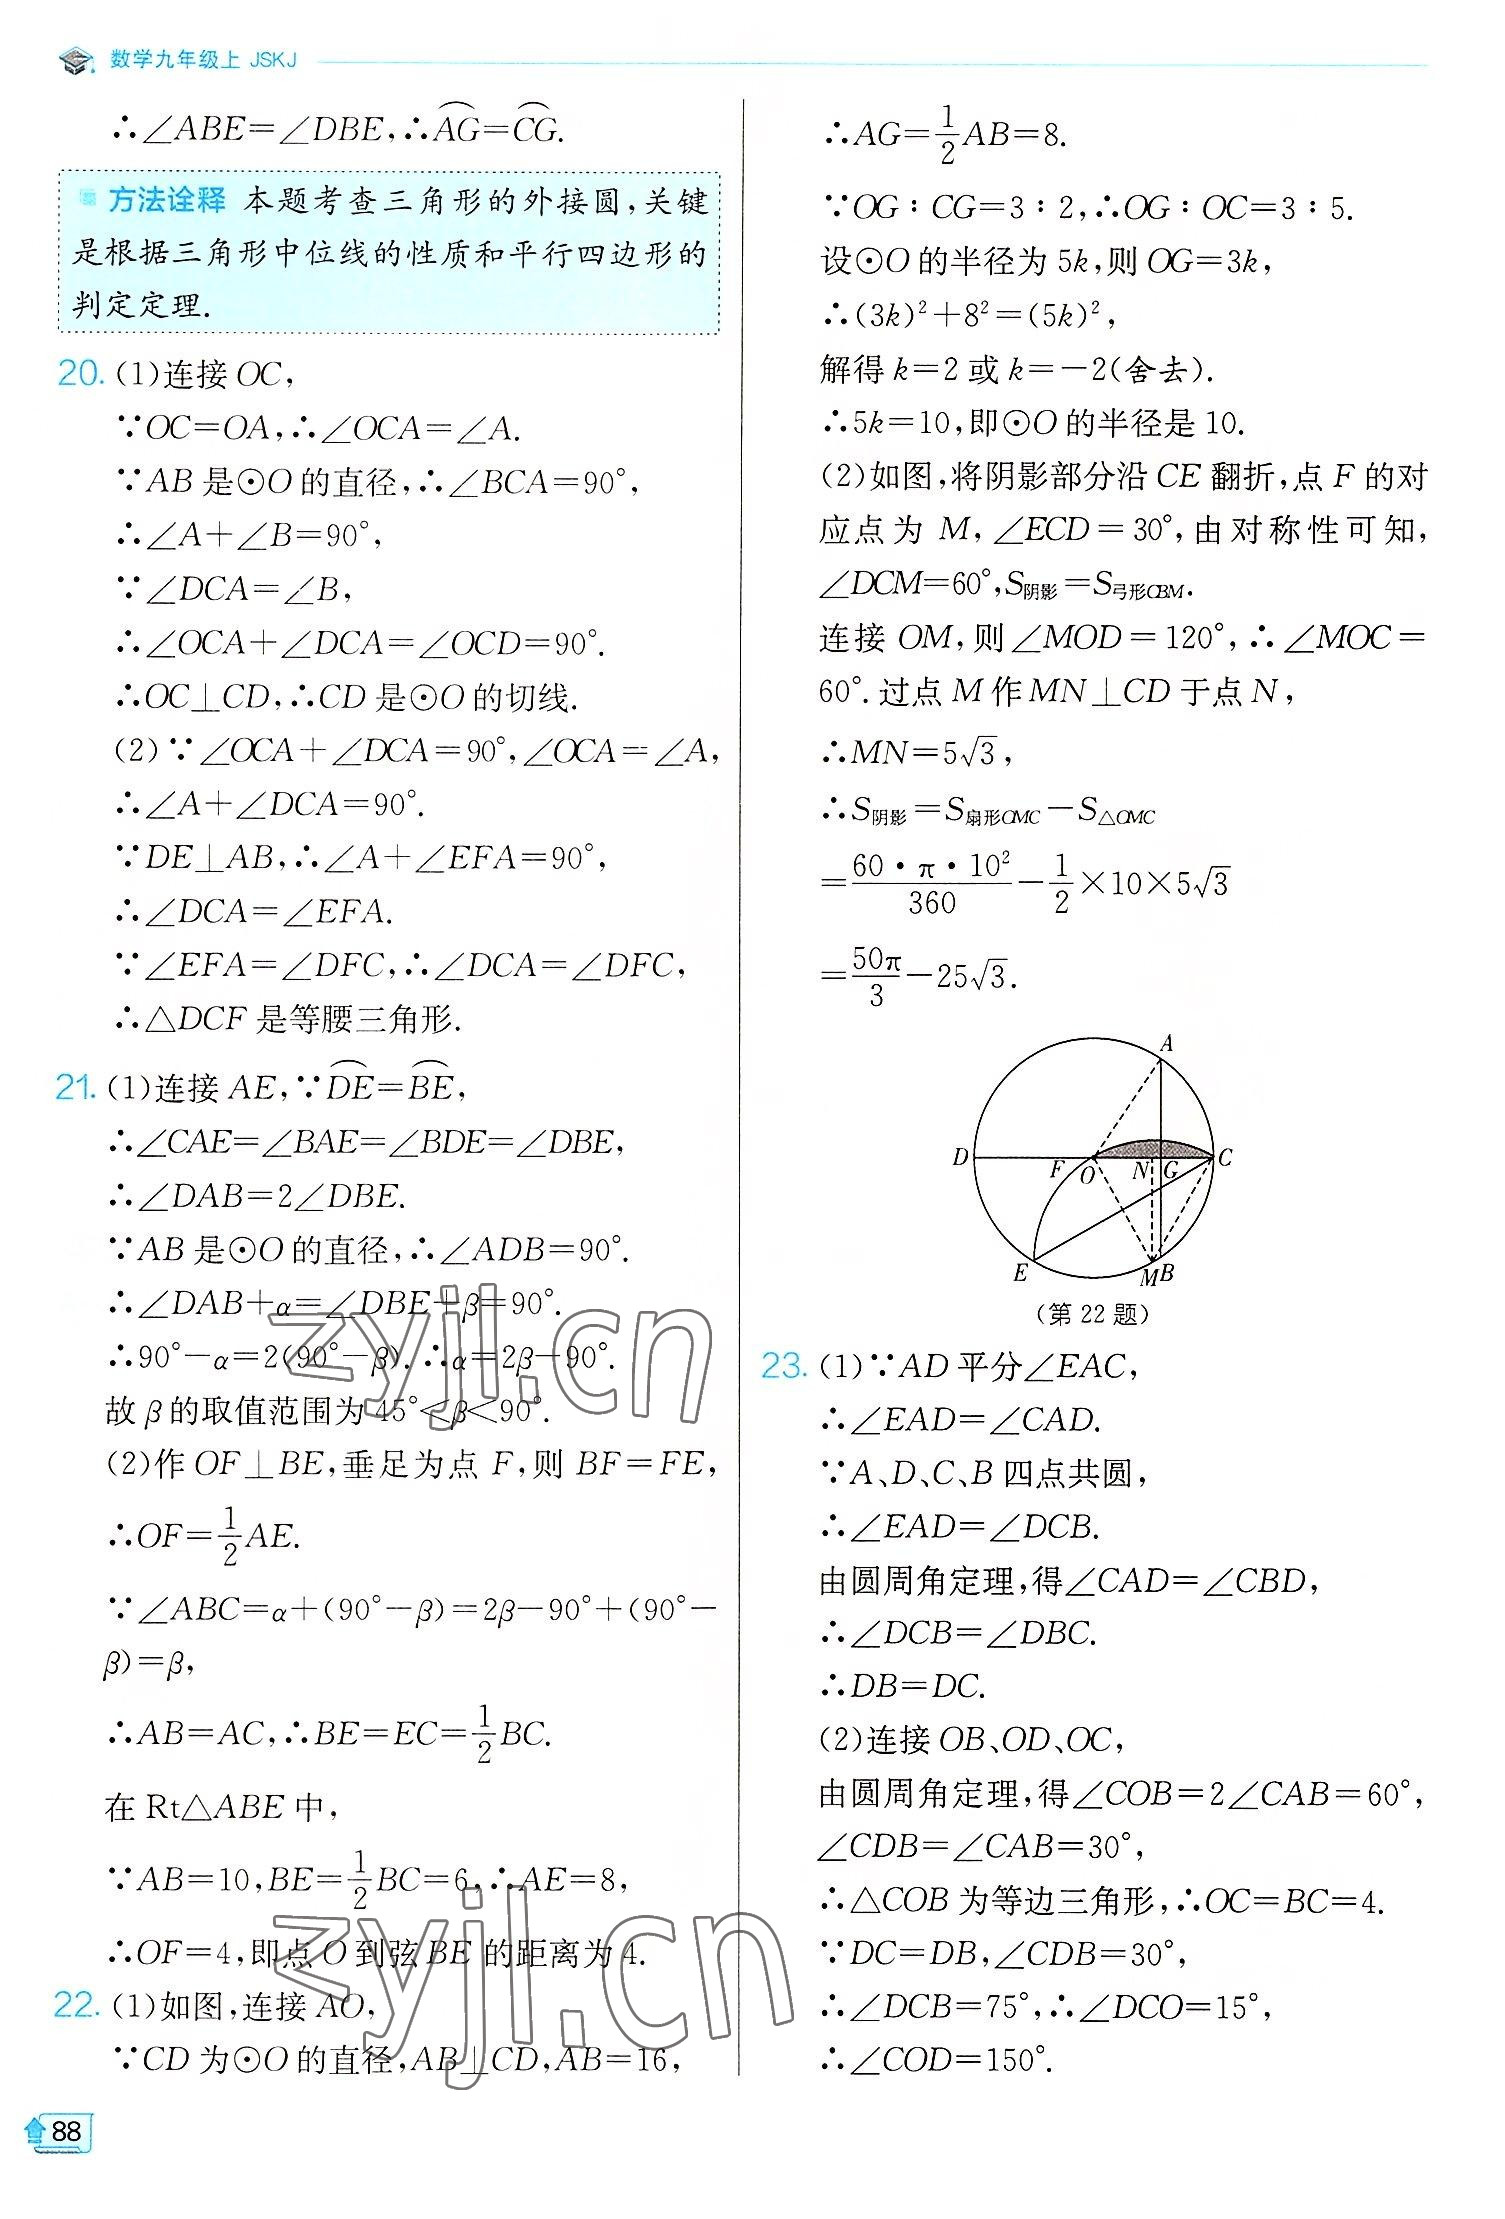 数学九年级上 JSKJ
∴∠ABE=∠DBE,∴A͡G=C͡G.
方法诠释 本题考查三角形的外接圆,关键
是根据三角形中位线的性质和平行四边形的
判定定理.
20. (1)连接 OC,
∵OC=OA,∴∠OCA=∠A.
∵AB 是⊙O 的直径,∴∠BCA=90°,
∴∠A+∠B=90°,
∵∠DCA=∠B,
∴∠OCA+∠DCA=∠OCD=90°.
∴OC⊥CD,∴CD 是⊙O 的切线.
(2)∵∠OCA+∠DCA=90°,∠OCA=∠A,
∴∠A+∠DCA=90°.
∵DE⊥AB,∴∠A+∠EFA=90°,
∴∠DCA=∠EFA.
∵∠EFA=∠DFC,∴∠DCA=∠DFC,
∴△DCF 是等腰三角形.
21. (1)连接 AE,∵D͡E=B͡E,
∴∠CAE=∠BAE=∠BDE=∠DBE,
∴∠DAB=2∠DBE.
∵AB 是⊙O 的直径,∴∠ADB=90°.
∴∠DAB+α=∠DBE+β=90°.
∴90°-α=2(90°-β).∴α=2β-90°.
故 β 的取值范围为 45°<β<90°.
(2)作 OF⊥BE,垂足为点 F,则 BF=FE,
∴OF=1/2 AE.
∵∠ABC=α+(90°-β)=2β-90°+(90°-
β)=β,
∴AB=AC,∴BE=EC=1/2 BC.
在 Rt△ABE 中,
∵AB=10,BE=1/2 BC=6,∴AE=8,
∴OF=4,即点 O 到弦 BE 的距离为 4.
22. (1)如图,连接 AO,
∵CD 为⊙O 的直径,AB⊥CD,AB=16,
88
∴AG=1/2 AB=8.
∵OG∶CG=3∶2,∴OG∶OC=3∶5.
设⊙O 的半径为 5k,则 OG=3k,
∴(3k)²+8²=(5k)²,
解得 k=2 或 k=-2(舍去).
∴5k=10,即⊙O 的半径是 10.
(2)如图,将阴影部分沿 CE 翻折,点 F 的对
应点为 M,∠ECD=30°,由对称性可知,
∠DCM=60°,S阴影=S弓形CBM.
连接 OM,则∠MOD=120°,∴∠MOC=
60°.过点 M 作 MN⊥CD 于点 N,
∴MN=5√3,
∴S阴影=S扇形OMC-S△OMC
=60·π·10²/360-1/2×10×5√3
=50π/3-25√3.
A
D F O N G C
E M B
(第 22 题)
23. (1)∵AD 平分∠EAC,
∴∠EAD=∠CAD.
∵A、D、C、B 四点共圆,
∴∠EAD=∠DCB.
由圆周角定理,得∠CAD=∠CBD,
∴∠DCB=∠DBC.
∴DB=DC.
(2)连接 OB、OD、OC,
由圆周角定理,得∠COB=2∠CAB=60°,
∠CDB=∠CAB=30°,
∴△COB 为等边三角形,∴OC=BC=4.
∵DC=DB,∠CDB=30°,
∴∠DCB=75°,∴∠DCO=15°,
∴∠COD=150°.
zyjl.cn
zyjl.cn